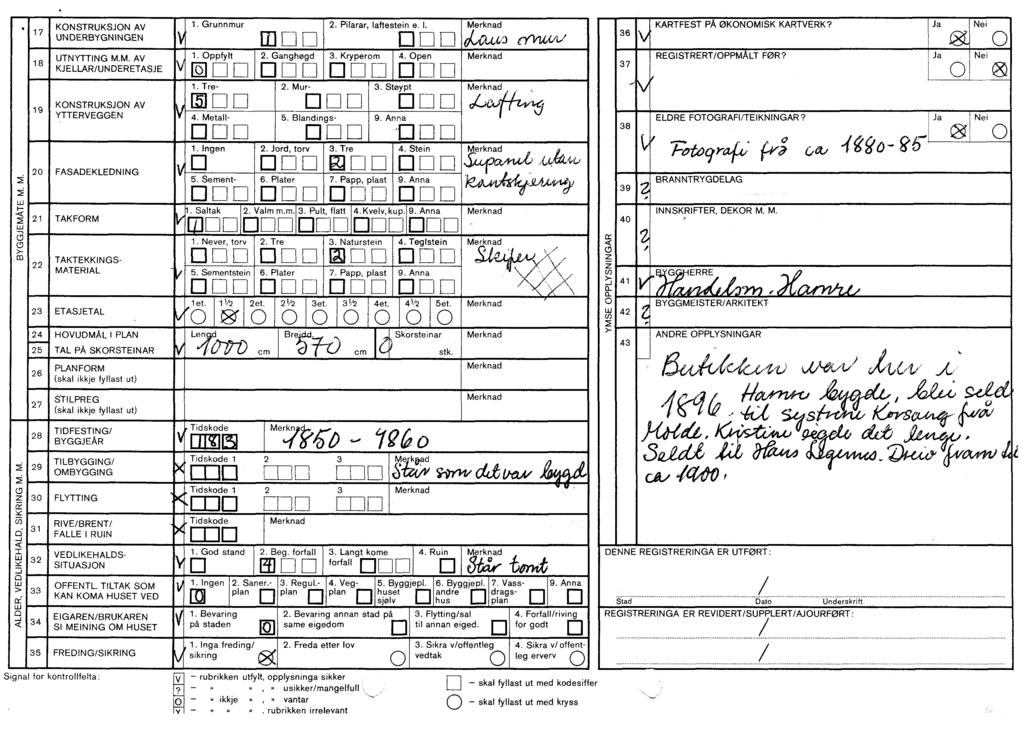 17 KONSTRUKSJON AV UNDERBYGNINGEN V 1. Grunnmur 1 2. Pilarar, laftestein e. l. Merknad Laus mur
18 UTNYTTING M.M. AV KJELLAR/UNDERETASJE V 1. Oppfylt 0 2. Ganghøgd 3. Kryperom 4. Open Merknad
19 KONSTRUKSJON AV YTTERVEGGEN V 1. Tre- 5 2. Mur- 3. Støypt Merknad Lafting
4. Metall- 5. Blandings- 9. Anna
20 FASADEKLEDNING V 1. Ingen 2. Jord, torv 3. Tre 2 4. Stein Merknad Supanel utan
5. Sement- 6. Plater 7. Papp, plast 9. Anna Kantskjering
21 TAKFORM V 1. Saltak 1 2. Valm m.m. 3. Pult, flatt 4. Kvelv, kup. 9. Anna Merknad
22 TAKTEKKINGS-MATERIAL V 1. Never, torv 2. Tre 3. Naturstein 2 4. Teglstein Merknad Skifer
5. Sementstein 6. Plater 7. Papp, plast 9. Anna
BYGGJEMÅTE M. M.
23 ETASJETAL V 1et. 1½ 2et. 2½ 3et. 3½ 4et. 4½ 5et. Merknad
24 HOVUDMÅL I PLAN V Lengd 1000 cm Breidd 570 cm Skorsteinar 0 stk. Merknad
25 TAL PÅ SKORSTEINAR
26 PLANFORM (skal ikkje fyllast ut) Merknad
27 STILPREG (skal ikkje fyllast ut) Merknad
28 TIDFESTING/BYGGJEÅR V Tidskode 183 Merknad 1850 - 1860
29 TILBYGGING/OMBYGGING X Tidskode 1 2 3 Merknad Står som det var bygd
30 FLYTTING X Tidskode 1 2 3 Merknad
31 RIVE/BRENT/FALLE I RUIN X Tidskode Merknad
32 VEDLIKEHALDS-SITUASJON V 1. God stand 2. Beg. forfall 4 3. Langt kome forfall 4. Ruin Merknad Står tomt
33 OFFENTL. TILTAK SOM KAN KOMA HUSET VED V 1. Ingen 0 2. Saner.-plan 3. Regul.-plan 4. Veg-plan 5. Byggjepl. huset sjølv 6. Byggjepl. andre hus 7. Vass-drags-plan 9. Anna
34 EIGAREN/BRUKAREN SI MEINING OM HUSET V 1. Bevaring på staden 0 2. Bevaring annan stad på same eigedom 3. Flytting/sal til annan eiged. 4. Forfall/riving for godt
35 FREDING/SIKRING V 1. Inga freding/sikring 2. Freda etter lov 3. Sikra v/offentleg vedtak 4. Sikra v/offent-leg erverv
ALDER, VEDLIKEHALD, SIKRING M. M.
Signal for kontrollfelta:
V – rubrikken utfylt, opplysninga sikker
? – " " , " usikker/mangelfull
O – " ikkje " , " vantar
– " " " . rubrikken irrelevant
– skal fyllast ut med kodesiffer
– skal fyllast ut med kryss
36 V KARTFEST PÅ ØKONOMISK KARTVERK? Ja Nei
37 V REGISTRERT/OPPMÅLT FØR? Ja Nei
38 V ELDRE FOTOGRAFI/TEIKNINGAR? Ja Nei
Fotografi frå ca 1880-85
39 ? BRANNTRYGDELAG
40 ? INNSKRIFTER, DEKOR M. M.
41 V BYGGHERRE
Handelsm. Hamre
42 ? BYGGMEISTER/ARKITEKT
43 ANDRE OPPLYSNINGAR
YMSE OPPLYSNINGAR
Butikken var her i
1896. Hamre bygde, blei seld
til systrene Korsang frå
Molde. Kristine eigde det lenge.
Seldt til Hans Dreiv fram til
ca 1900.
DENNE REGISTRERINGA ER UTFØRT:
/
Stad Dato Underskrift
REGISTRERINGA ER REVIDERT/SUPPLERT/AJOURFØRT:
/
/